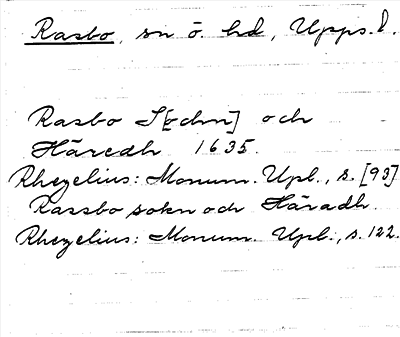 Rasbo, sn ö. hd, Upps. l.
Rasbo S[ochn] och
Häredh 1635.
Rhezelius: Monum. Upl., s. [93]
Rassbo sokn och Häradh.
Rhezelius: Monum. Upl., s. 122.